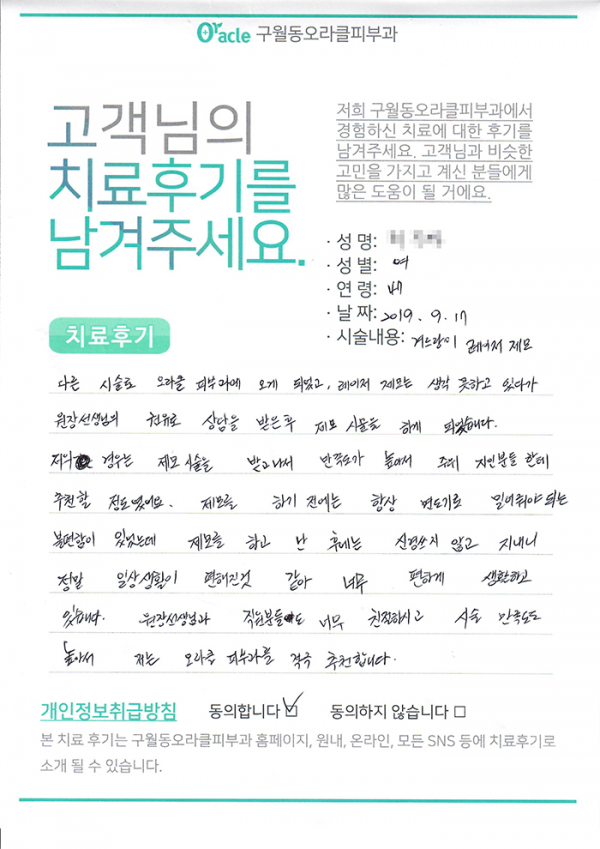 Oracle 구월동오라클피부과
고객님의
치료후기를
남겨주세요.
저희 구월동오라클피부과에서
경험하신 치료에 대한 후기를
남겨주세요. 고객님과 비슷한
고민을 가지고 계신 분들에게
많은 도움이 될 거에요.
· 성 명:
· 성 별: 여
· 연 령:
· 날 짜: 2019. 9. 17
· 시술내용: 겨드랑이 레이저 제모
치료후기
다른 시술로 오라클 피부과에 오게 되었고, 레이저 제모는 생각 못하고 있다가
원장선생님의 권유로 상담을 받은후 제모 시술을 하게 되었습니다.
저의 경우는 제모 시술을 받고나서 만족도가 높아서 주위 지인분들 한테
추천할 정도였어요. 제모를 하기 전에는 항상 면도기로 밀어줘야 되는
불편함이 있었는데 제모를 하고 난 후에는 신경쓰지 않고 지내니
정말 일상생활이 편해진것 같아 너무 편하게 생활하고
있습니다. 원장선생님과 직원분들도 너무 친절하시고 시술 만족도도
높아서 저는 오라클 피부과를 적극 추천합니다.
개인정보취급방침 동의합니다 동의하지 않습니다
본 치료 후기는 구월동오라클피부과 홈페이지, 원내, 온라인, 모든 SNS 등에 치료후기로
소개 될 수 있습니다.